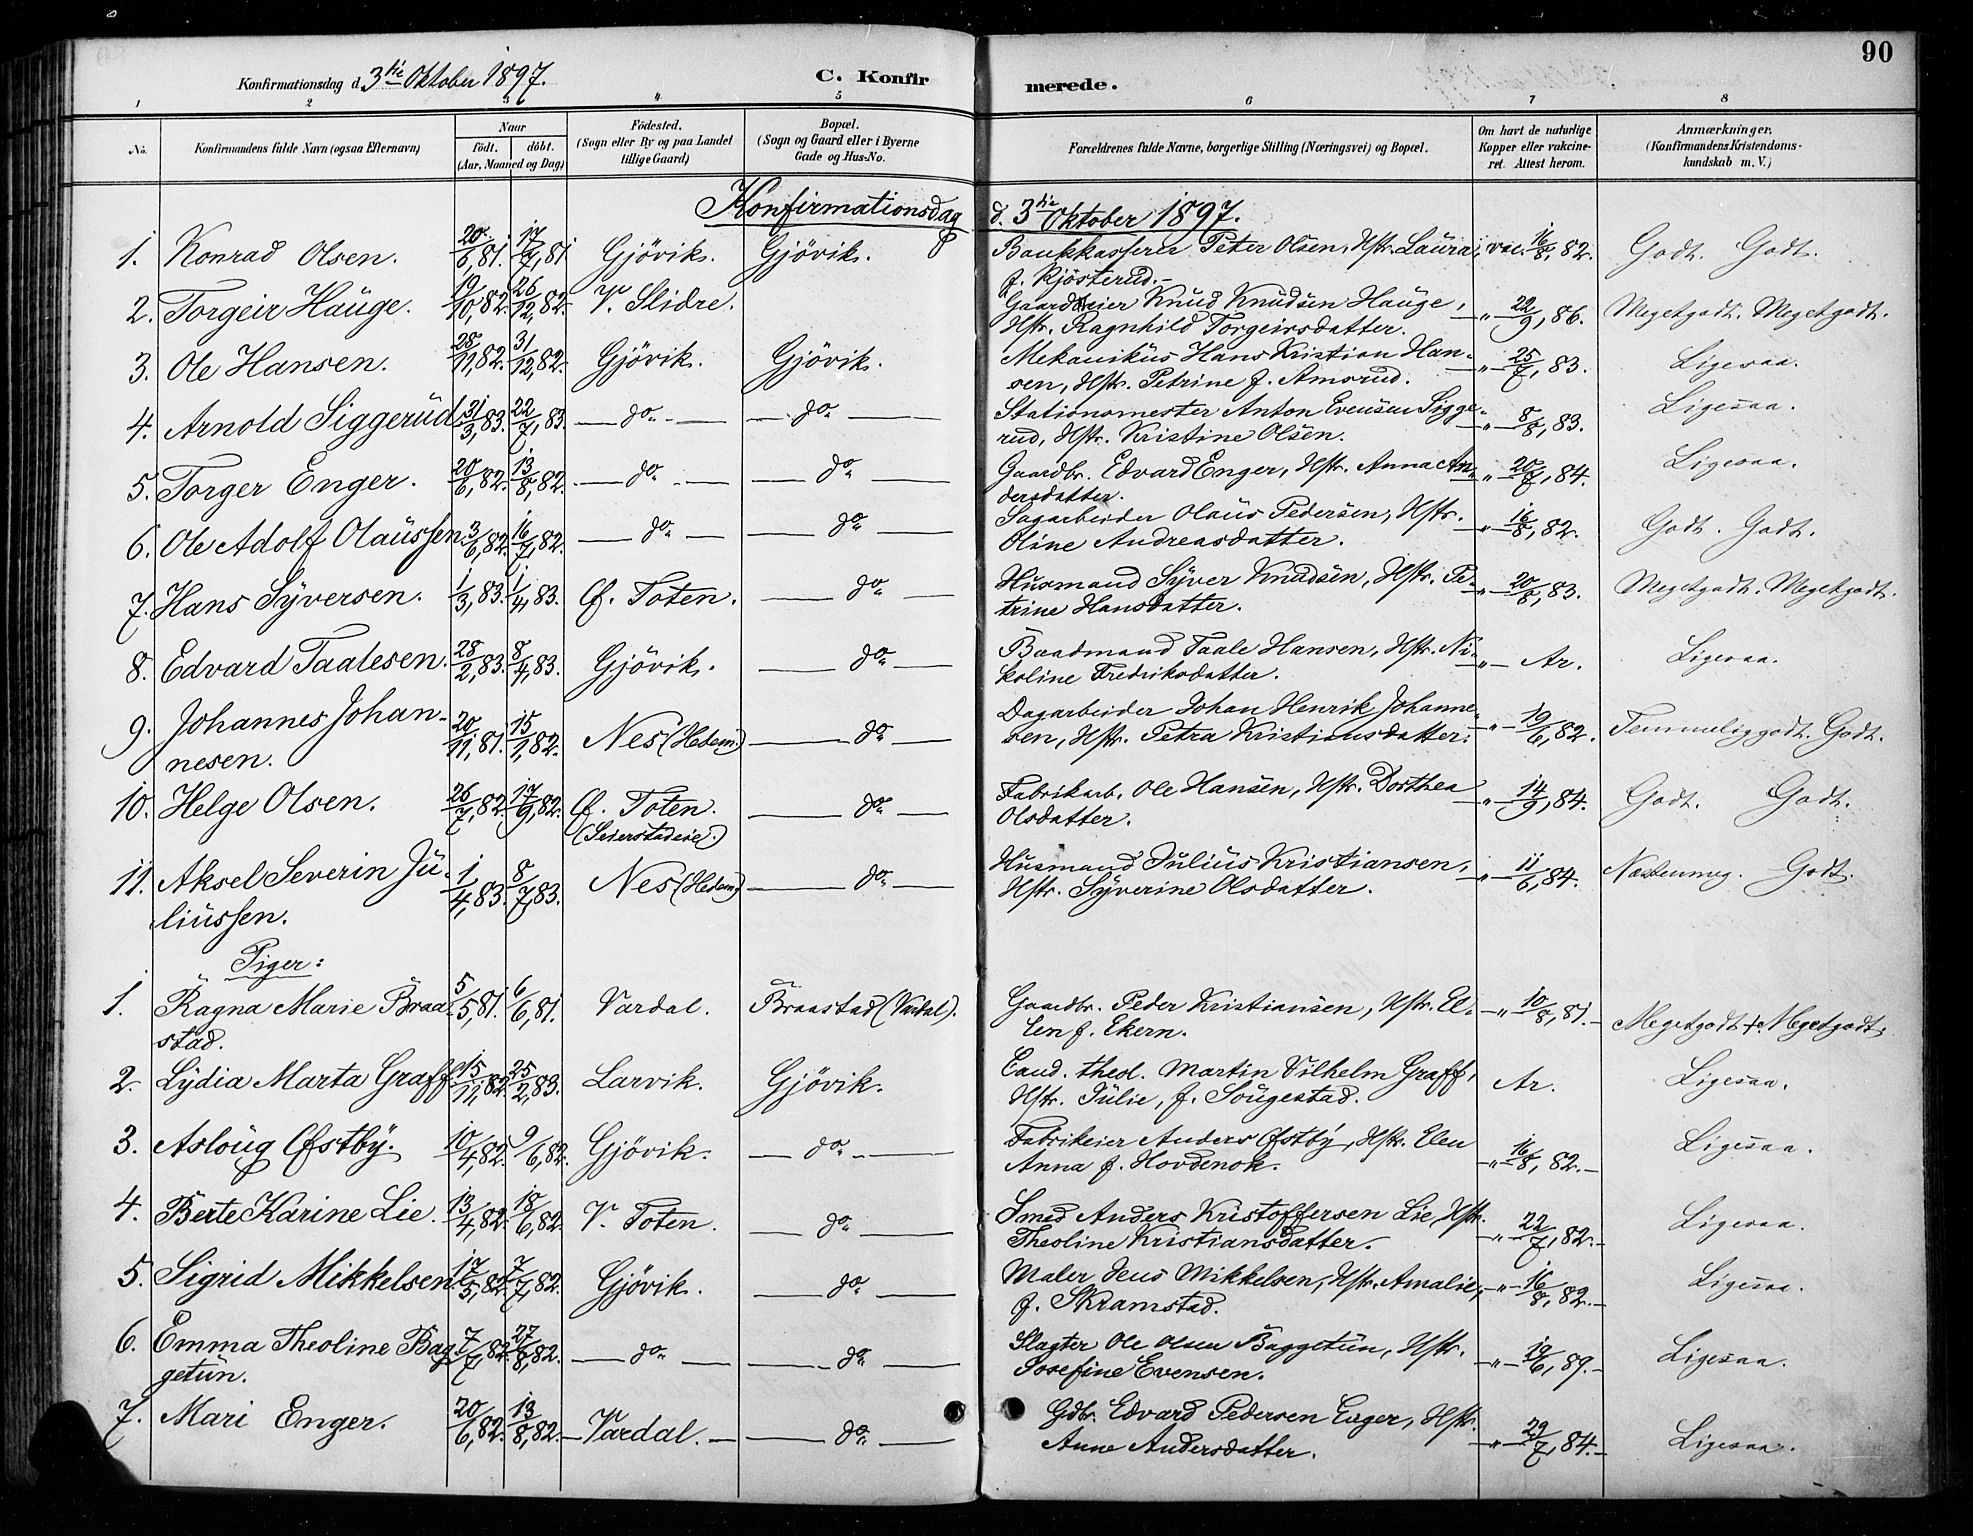 90
Konfirmationsdag d. 3die Oktober 1897.
C. Konfir
merede.
1 2 3 4 5 6 7 8
No.
Konfirmandens fulde Navn (ogsaa Efternavn)
Naar
födt. döbt.
(Aar, Maaned og Dag)
Födested.
(Sogn eller By og paa Landet
tillige Gaard)
Bopæl.
(Sogn og Gaard eller i Byerne
Gade og Hus-No.
Forældrenes fulde Navne, borgerlige Stilling (Næringsvei) og Bopæl.
Om havt de naturlige
Kopper eller vakcine-
ret. Attest herom.
Anmærkninger,
(Konfirmandens Kristendoms-
kundskab m. V.)
Konfirmationsdag d. 3die Oktober 1897.
1. Konrad Olsen. 20/6,81. 17/7,81 Gjövik. Gjövik. Bankkasserer Peter Olsen, Hstr. Laura, vac. 16/8,82. Godt. Godt.
f. Kjösterud.
2. Torgeir Hauge. 19/10,82. 26/12,82. V. Slidre. Gaardeier Knud Knudsen Hauge, -"- 22/9,86. Megetgodt. Megetgodt.
Hstr. Ragnhild Torgeirsdatter.
3. Ole Hansen. 28/11,82. 31/12,82. Gjövik. Gjövik. Mekanikus Hans Kristian Han- -"- 25/7,83. Ligesaa.
sen, Hstr. Petrine f. Amsrud.
4. Arnold Siggerud 31/3,83. 22/7,83. do do Stationsmester Anton Evensen Sigge- -"- 8/8,83. Ligesaa.
rud, Hstr. Kristine Olsen.
5. Torger Enger. 20/6,82. 13/8,82. do do Gaardbr. Edvard Enger, Hstr. Anna An- -"- 20/7,84. Ligesaa.
dersdatter.
6. Ole Adolf Olaussen. 3/6,82. 16/7,82. do do Sagarbeider Olaus Pedersen, Hstr. -"- 16/8,82. Godt. Godt.
Oline Andreasdatter.
7. Hans Syversen. 1/3,83. 1/4,83. Ö. Toten. do Husmand Syver Knudsen, Hstr. Pe- -"- 20/8,83. Megetgodt. Megetgodt.
trine Hansdatter.
8. Edvard Taalesen. 28/2,83. 8/4,83. Gjövik. do Baadmand Taale Hansen, Hstr. Ni- -"- Ar. Ligesaa.
koline Fredriksdatter.
9. Johannes Johan- 20/11,81. 15/1,82. Nes (Hedem) do Dagarbeider Johan Henrik Johanne- -"- 19/6,82. Temmeliggodt. Godt.
nesen. sen, Hstr. Petra Kristiansdatter.
10. Helge Olsen. 26/7,82. 17/9,82. Ö. Toten. do Fabrikarb. Ole Hansen, Hstr. Dorthea -"- 14/9,84. Godt. Godt.
(Seierstadeie.) Olsdatter.
11. Aksel Severin Ju- 1/4,83. 8/7,83. Nes (Hedem) do Husmand Julius Kristiansen, -"- 11/6,84. Næstenmeg. Godt.
liussen. Hstr. Syverine Olsdatter.
Piger:
1. Ragna Marie Braa- 5/5,81. 6/6,81. Vardal. Braastad (Vardal). Gaardbr. Peder Kristiansen, Hstr. El- -"- 10/8,81.- Megetgodt+. Megetgodt.
stad. len f. Ekern.
2. Lydia Marta Graff 15/11,82. 25/2,83. Larvik. Gjövik. Cand. theol. Martin Vilhelm Graff, Ar. Ligesaa.
Hstr. Julie, f. Sougestad.
3. Asloug Østby. 10/4,82. 9/6,82. Gjövik. do Fabrikeier Anders Østby, Hstr. Elen -"- 16/8,82.- Ligesaa.
Anna f. Hovdenok.
4. Berte Karine Lie. 13/4,82. 18/6,82. V. Toten. do Smed Anders Kristoffersen Lie, Hstr. -"- 22/7,82.- Ligesaa.
Theoline Kristiansdatter.
5. Sigrid Mikkelsen. 17/5,82. 7/7,82. Gjövik. do Maler Jens Mikkelsen, Hstr. Amalie, -"- 16/8,82.- Ligesaa.
f. Skramstad.
6. Emma Theoline Bag- 7/7,82. 27/8,82. do do Slagter Ole Olsen Baggetun, Hstr. -"- 19/6,89.- Ligesaa.
getun. Josefine Evensen.
7. Mari Enger. 20/6,82. 13/8,82. Vardal. do Gdbr. Edvard Pedersen Enger, Hstr. -"- 29/7,84.- Ligesaa.
Anne Andersdatter.